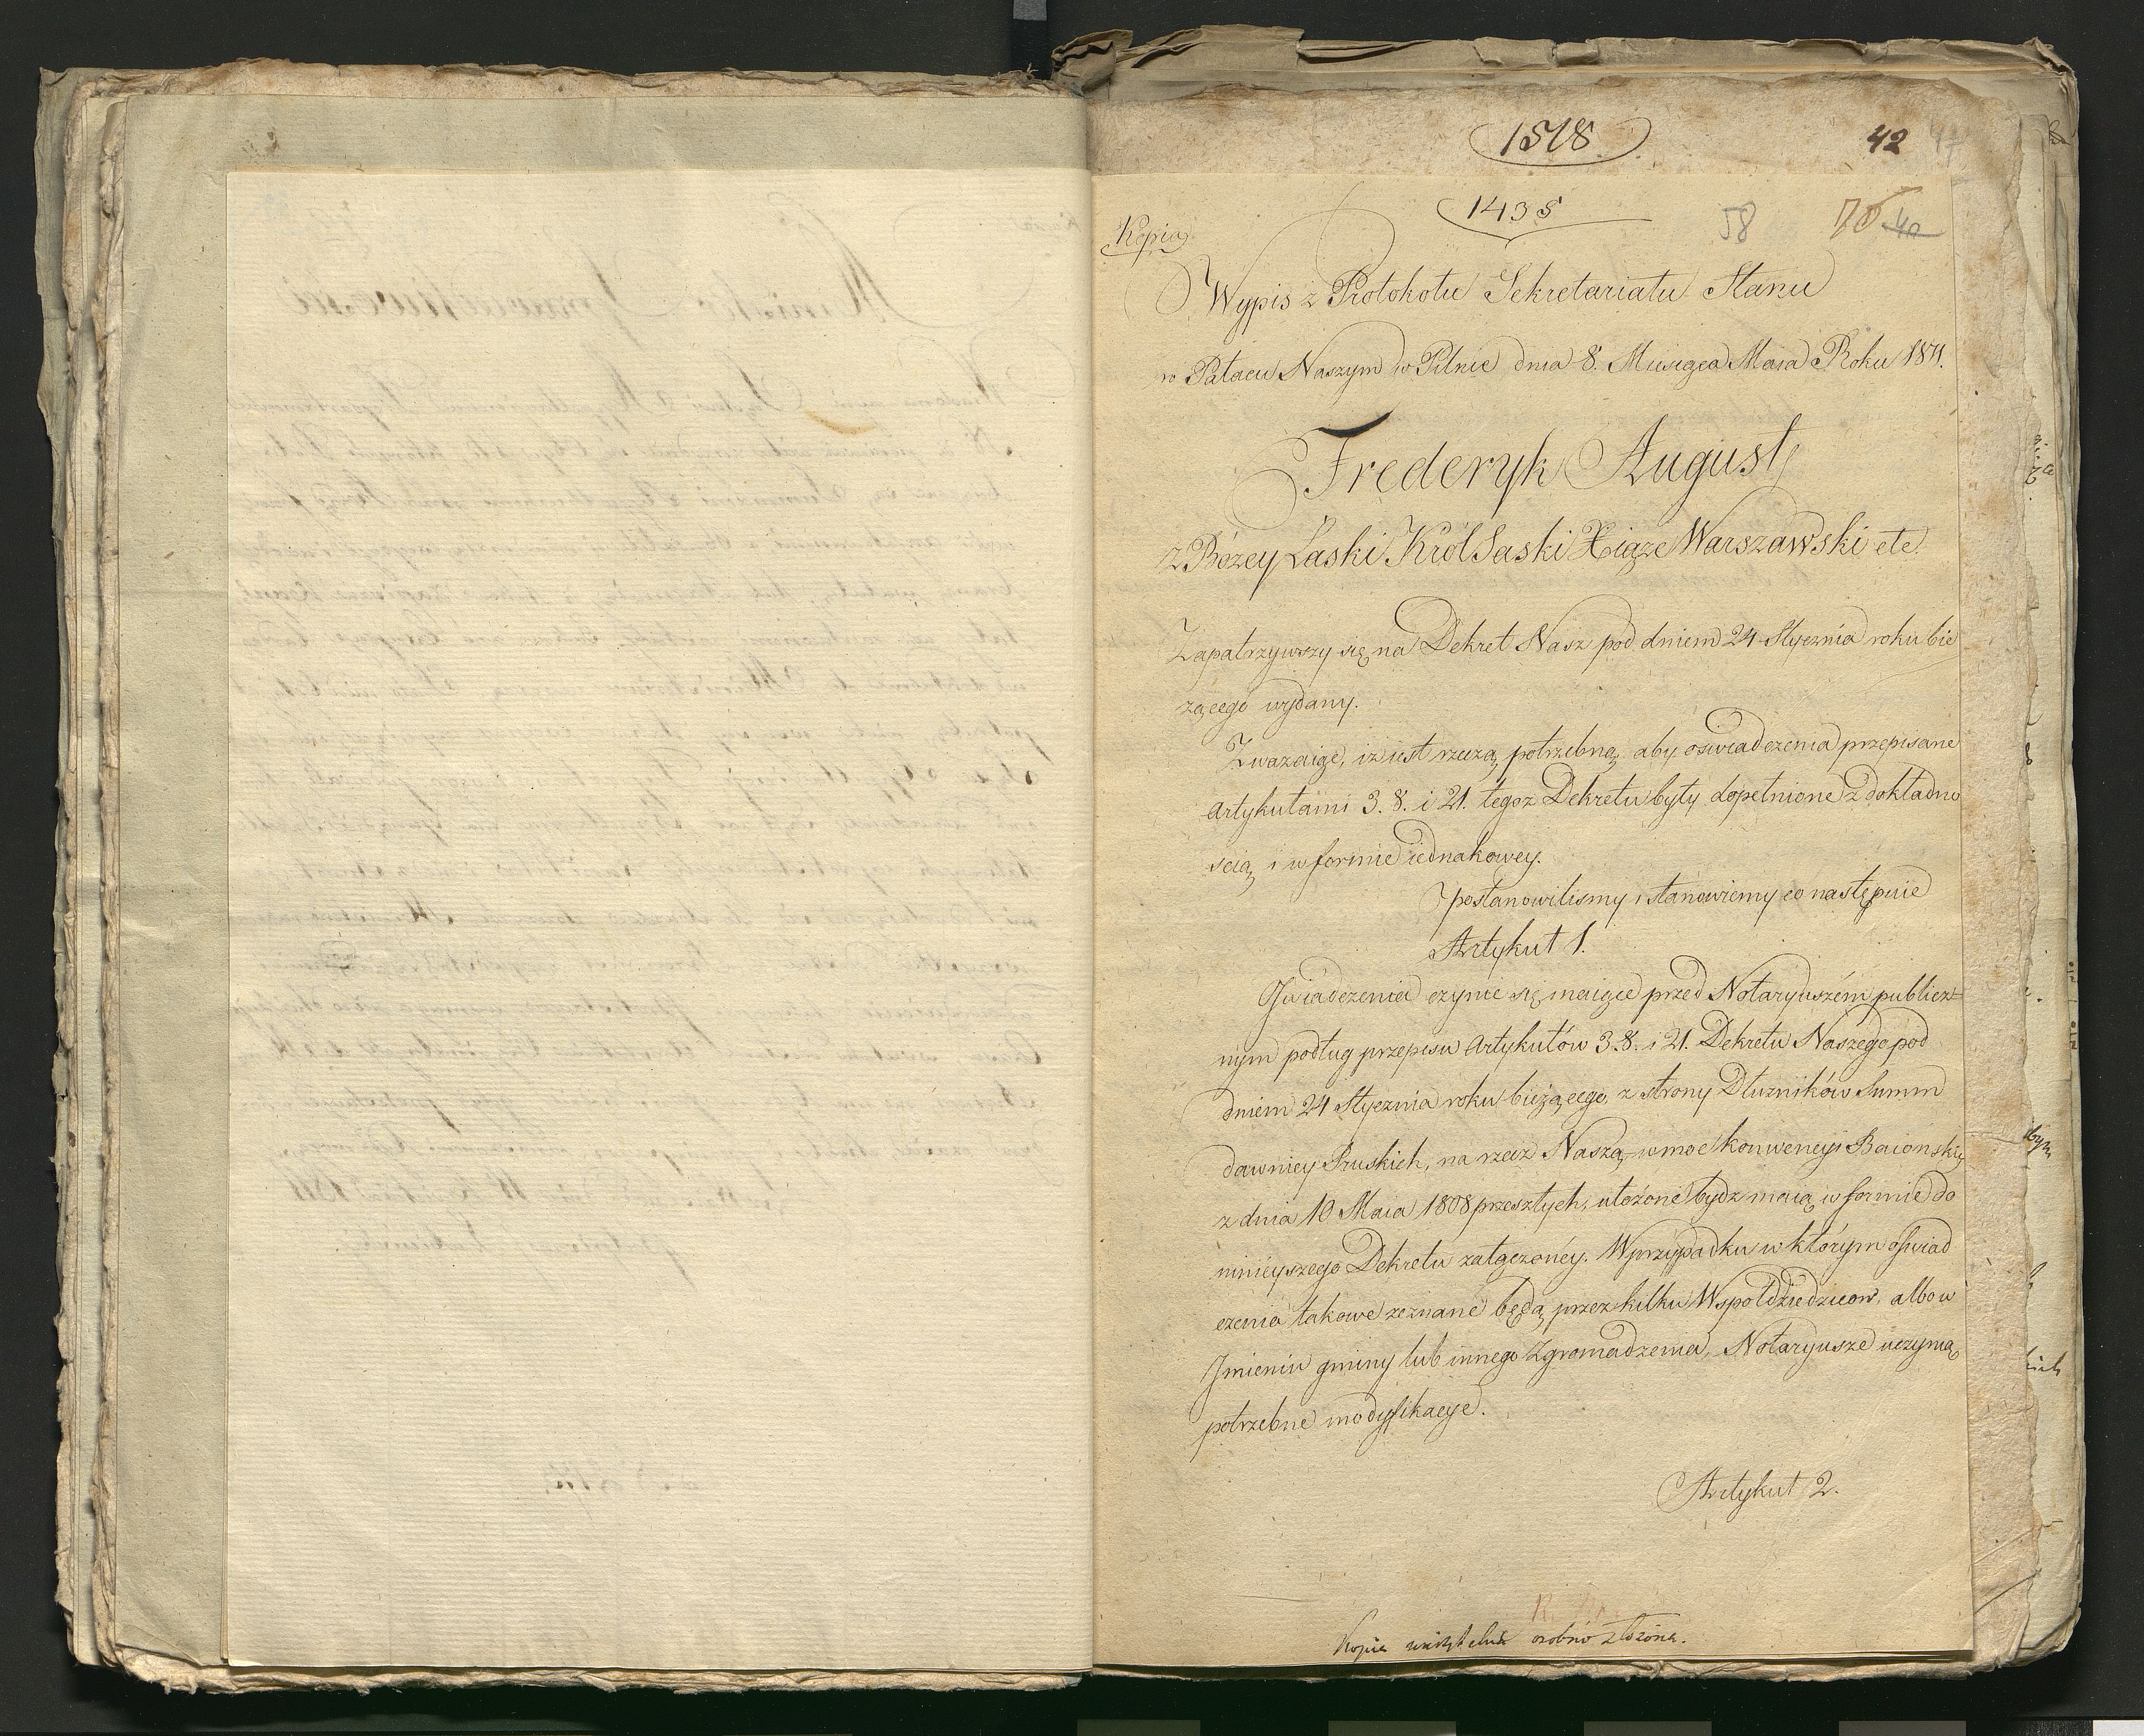 1518.
42 47
1435
58 70 40
Kopia
Wypis z Protokołu Sekretariatu Stanu
w Pałacu Naszym w Pilnie dnia 8. Miesiąca Maia Roku 1811.
Frederyk August
z Bożey Łaski Król Saski Xiąże Warszawski etc.
Zapatrzywszy się na Dekret Nasz pod dniem 24 Stycznia roku bie
żącego wydany.
Zważaiąc, iż iest rzeczą potrzebną aby oświadczenia przepisane
Artykułami 3. 8. i 21. tegoż Dekretu były dopełnione z dokładno
ścią i w formie iednakowey.
Postanowiliśmy i stanowiemy co następuie
Artykuł 1.
Oświadczenia czynić się maiące przed Notaryuszem publicz=
nym podług przepisu Artykułów 3. 8. i 21. Dekretu Naszego pod
dniem 24 Stycznia roku bieżącego, z strony Dłużników Summ
dawniey Pruskich, na rzecz Naszą w moc konwencyi Baiońskiey
z dnia 10 Maia 1808 przeszłych, ułożone bydź maią w formie do
ninieyszego Dekretu załączoney. W przypadku w którym oświad
czenia takowe zeznane będą przez kilku Współdziedziców, albo w
Jmieniu gminy lub innego Zgromadzenia, Notaryusze uczynią
potrzebne modyfikacye.
Artykuł 2.
Kopia osobno złożona.